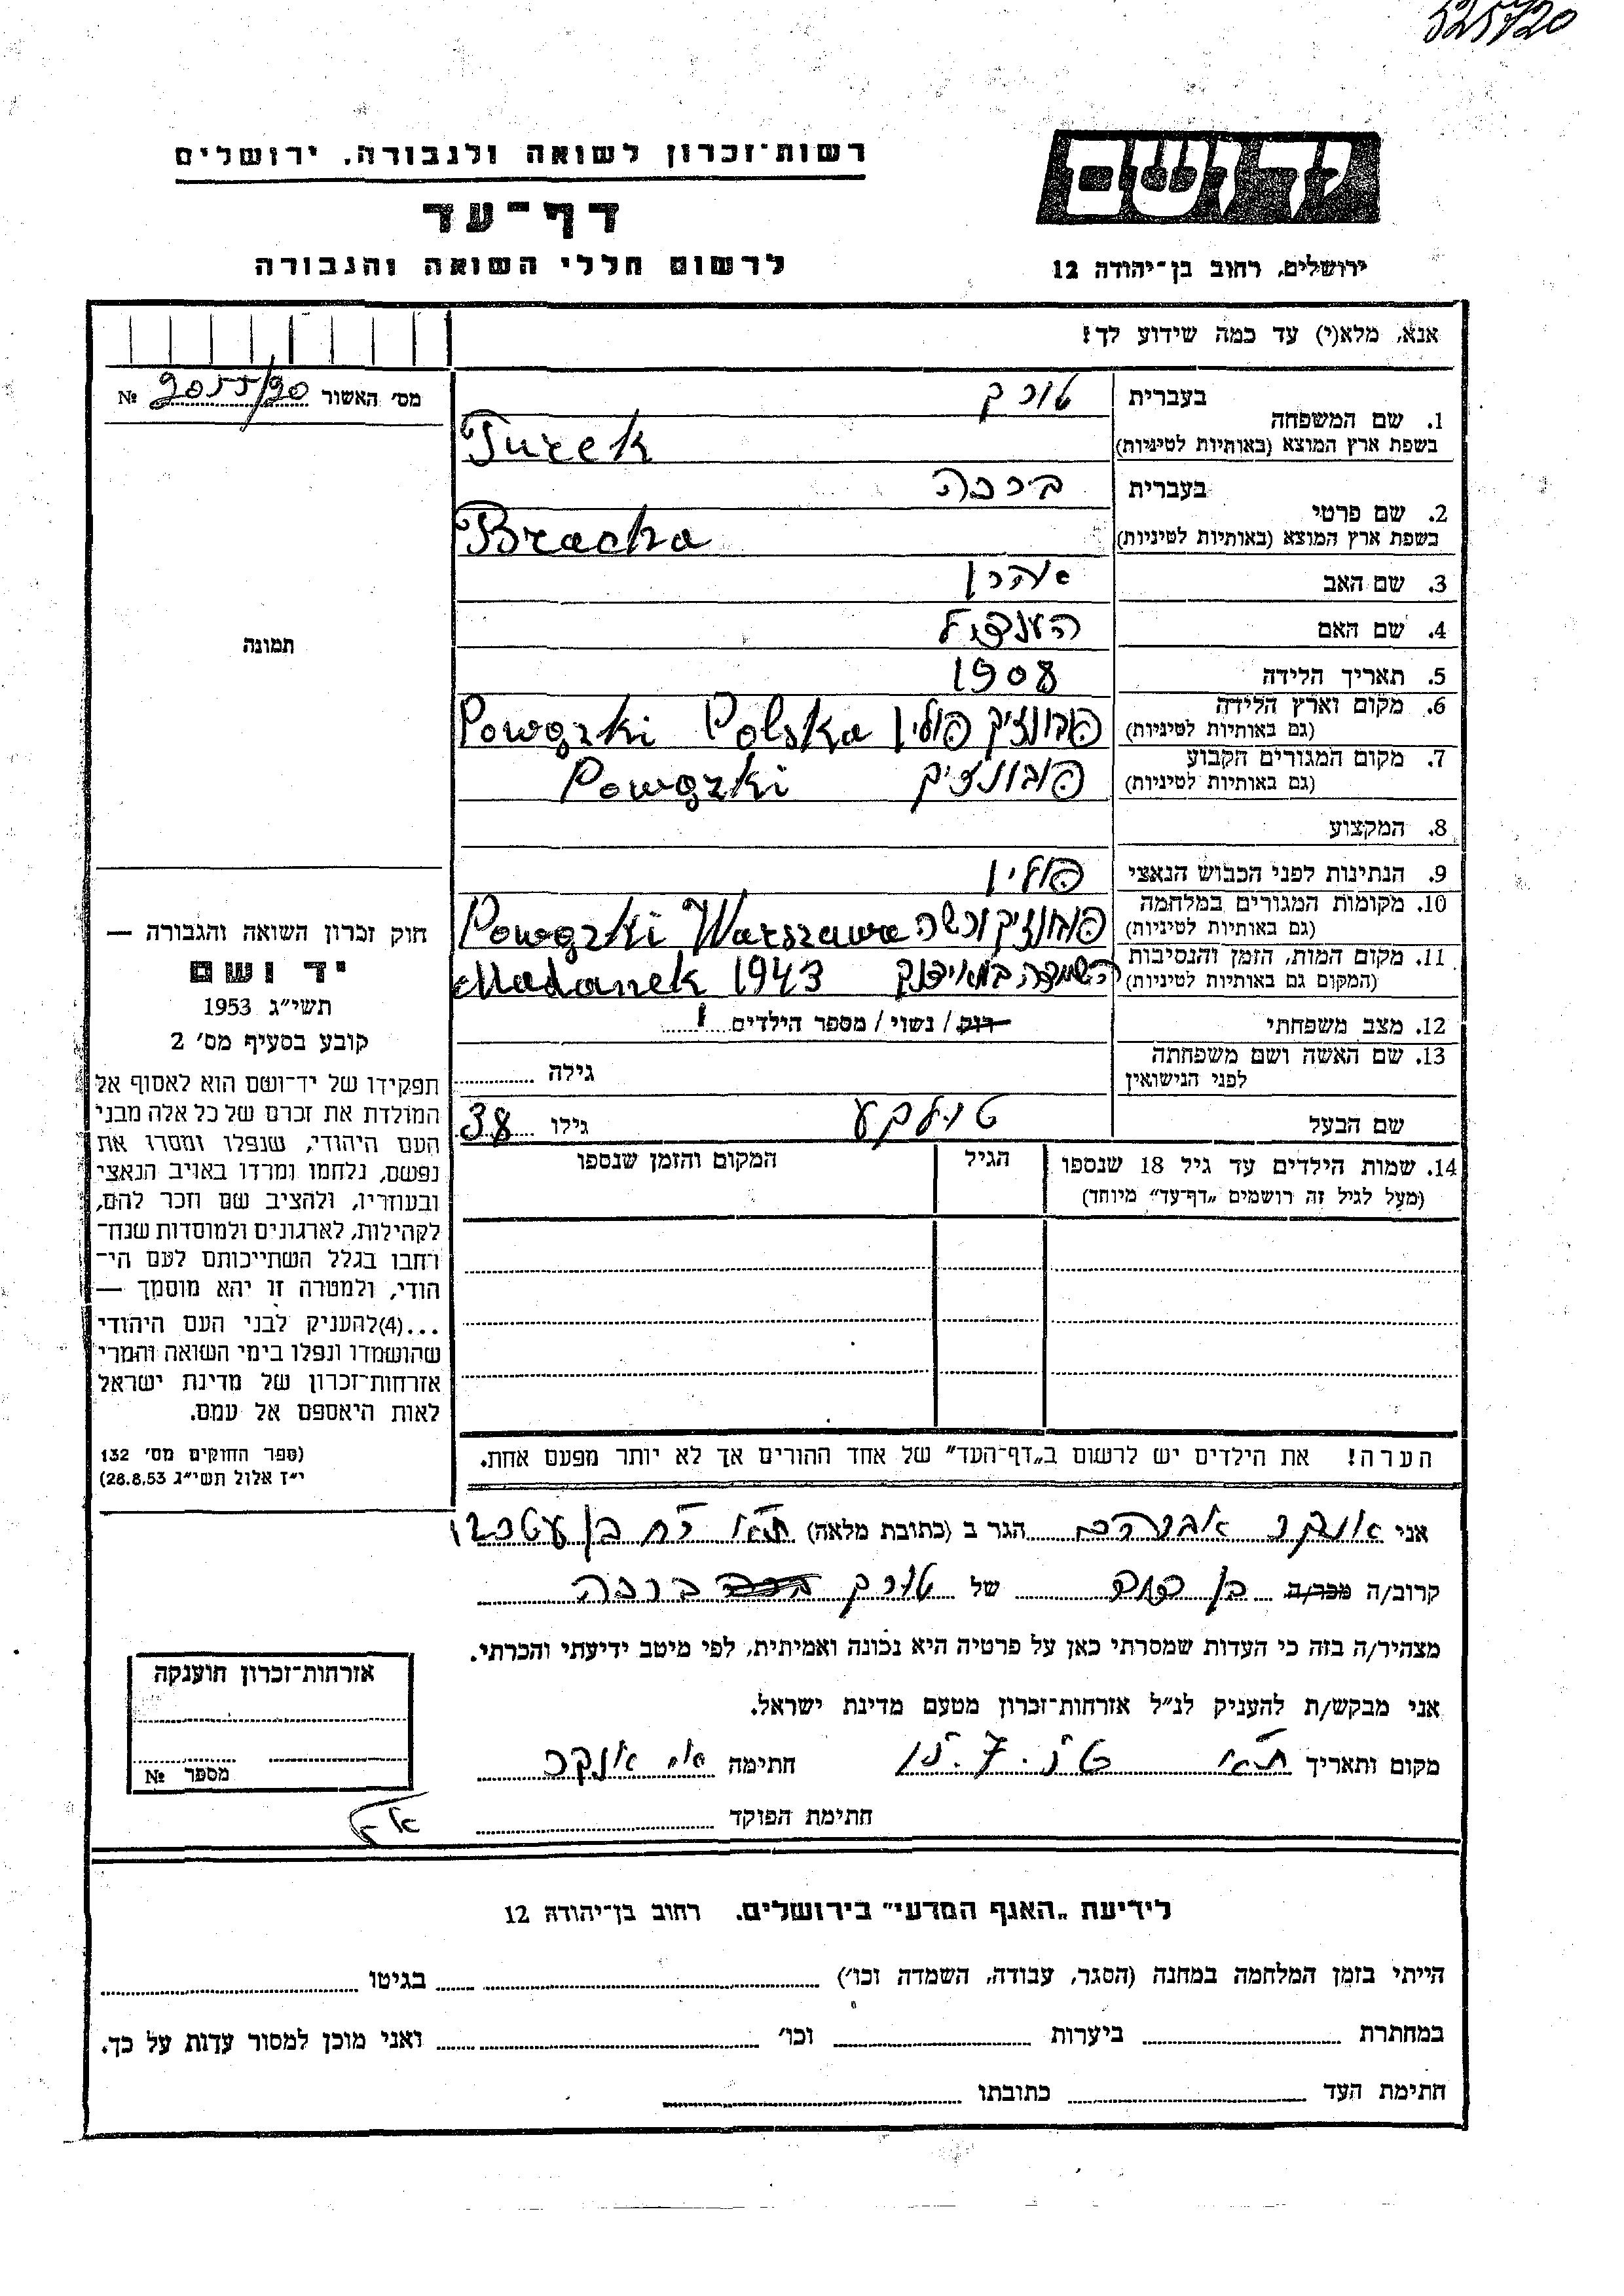 525/20
רשות־זכרון לשואה ולגבורה, ירושלים
דף־עד
לרשום חללי השואה והגבורה
יד ושם
ירושלים, רחוב בן־יהודה 12
אנא, מלא(י) עד כמה שידוע לך!
מס׳ האשור 2055/90 №
1. שם המשפחה
בעברית טורק
בשפת ארץ המוצא (באותיות לטיניות) Turek
2. שם פרטי
בעברית ברכה
בשפת ארץ המוצא (באותיות לטיניות) Bracha
3. שם האב אהרן
4. שם האם הענדל
5. תאריך הלידה 1908
6. מקום וארץ הלידה
(גם באותיות לטיניות) פוונזק פולין Powązki Polska
7. מקום המגורים הקבוע
(גם באותיות לטיניות) פובונזק Powązki
8. המקצוע
9. הנתינות לפני הכבוש הנאצי פולין
10. מקומות המגורים במלחמה
(גם באותיות לטיניות) ורשה Powązki Warszawa
11. מקום המות, הזמן והנסיבות
(המקום גם באותיות לטיניות) השמדה במאידנק Madanek 1943
12. מצב משפחתי רוק / נשוי / מספר הילדים 1
13. שם האשה ושם משפחתה
לפני הנישואין גילה
שם הבעל גילו 38
14. שמות הילדים עד גיל 18 שנספו הגיל המקום והזמן שנספו
(מעל לגיל זה רושמים „דף־עד״ מיוחד)
הערה! את הילדים יש לרשום ב„דף־העד״ של אחד ההורים אך לא יותר מפעם אחת.
תמונה
חוק זכרון השואה והגבורה —
יד ושם
תשי״ג 1953
קובע בסעיף מס׳ 2
תפקידו של יד־ושם הוא לאסוף אל
המולדת את זכרם של כל אלה מבני
העם היהודי, שנפלו ומסרו את
נפשם, נלחמו ומרדו באויב הנאצי
ובעוזריו, ולהציב שם וזכר להם,
לקהילות, לארגונים ולמוסדות שנח־
רחבו בגלל השתייכותם לעם הי־
הודי, ולמטרה זו יהא מוסמך —
...(4)להעניק לבני העם היהודי
שהושמדו ונפלו בימי השואה והמרי
אזרחות־זכרון של מדינת ישראל
לאות היאספם אל עמם.
(ספר החוקים מס׳ 132
י״ז אלול תשי״ג 28.8.53)
אני אונקר אברהם הגר ב (כתובת מלאה) ת״א רח בן
קרוב/ה מכר/ה בן דוד של טורק ברכה
מצהיר/ה בזה כי העדות שמסרתי כאן על פרטיה היא נכונה ואמיתית, לפי מיטב ידיעתי והכרתי.
אני מבקש/ת להעניק לנ״ל אזרחות־זכרון מטעם מדינת ישראל.
מקום ותאריך ת״א חתימה אונקר
חתימת הפוקד
אזרחות־זכרון הוענקה
מספר №
לידיעת „האגף המדעי״ בירושלים. רחוב בן־יהודה 12
הייתי בזמן המלחמה במחנה (הסגר, עבודה, השמדה וכו׳) בגיטו
במחתרת ביערות וכו׳ ואני מוכן למסור עדות על כך.
חתימת העד כתובתו